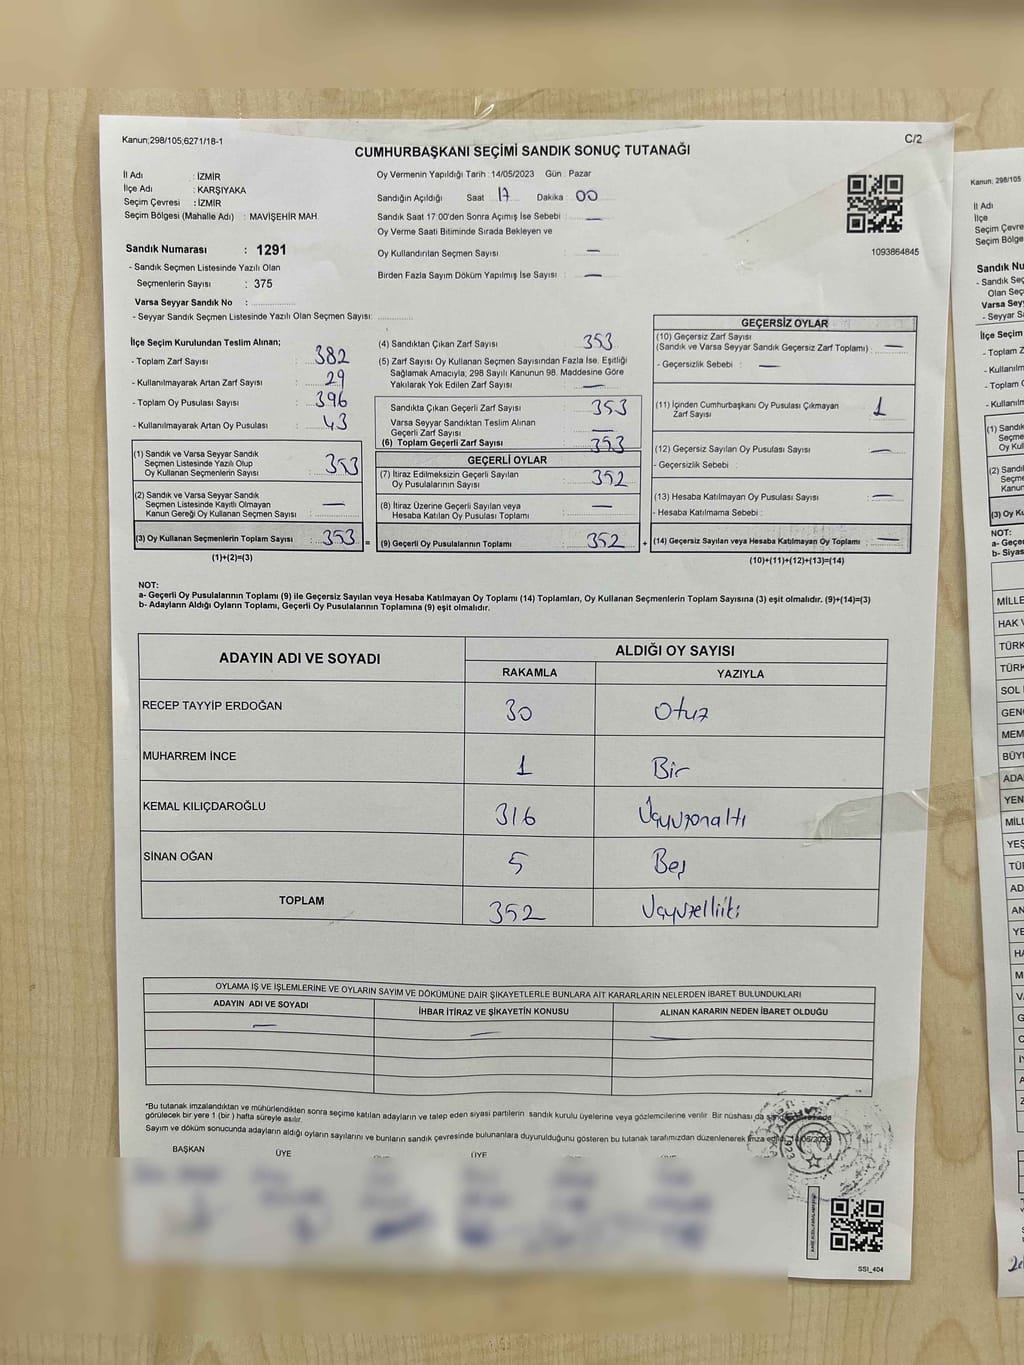 Kanun;298/105;6271/18-1
C/2
CUMHURBAŞKANI SEÇİMİ SANDIK SONUÇ TUTANAĞI
İl Adı : İZMİR
İlçe Adı : KARŞIYAKA
Seçim Çevresi : İZMİR
Seçim Bölgesi (Mahalle Adı) : MAVİŞEHİR MAH.
Oy Vermenin Yapıldığı Tarih : 14/05/2023 Gün : Pazar
Sandığın Açıldığı Saat 17 Dakika 00
Sandık Saat 17.00'den Sonra Açımış İse Sebebi : —
Oy Verme Saati Bitiminde Sırada Bekleyen ve
Oy Kullandırılan Seçmen Sayısı : —
Birden Fazla Sayım Döküm Yapılmış İse Sayısı : —
1093864845
Sandık Numarası : 1291
- Sandık Seçmen Listesinde Yazılı Olan
Seçmenlerin Sayısı : 375
Varsa Seyyar Sandık No :
- Seyyar Sandık Seçmen Listesinde Yazılı Olan Seçmen Sayısı:
İlçe Seçim Kurulundan Teslim Alınan;
- Toplam Zarf Sayısı : 382
- Kullanılmayarak Artan Zarf Sayısı : 29
- Toplam Oy Pusulası Sayısı : 396
- Kullanılmayarak Artan Oy Pusulası : 43
(1) Sandık ve Varsa Seyyar Sandık
Seçmen Listesinde Yazılı Olup
Oy Kullanan Seçmenlerin Sayısı : 353
(2) Sandık ve Varsa Seyyar Sandık
Seçmen Listesinde Kayıtlı Olmayan
Kanun Gereği Oy Kullanan Seçmen Sayısı : —
(3) Oy Kullanan Seçmenlerin Toplam Sayısı : 353 =
(1)+(2)=(3)
(4) Sandıktan Çıkan Zarf Sayısı : 353
(5) Zarf Sayısı Oy Kullanan Seçmen Sayısından Fazla İse, Eşitliği
Sağlamak Amacıyla; 298 Sayılı Kanunun 98. Maddesine Göre
Yakılarak Yok Edilen Zarf Sayısı : —
Sandıkta Çıkan Geçerli Zarf Sayısı : 353
Varsa Seyyar Sandıktan Teslim Alınan
Geçerli Zarf Sayısı : —
(6) Toplam Geçerli Zarf Sayısı : 353
GEÇERLİ OYLAR
(7) İtiraz Edilmeksizin Geçerli Sayılan
Oy Pusulalarının Sayısı : 352
(8) İtiraz Üzerine Geçerli Sayılan veya
Hesaba Katılan Oy Pusulası Toplamı : —
(9) Geçerli Oy Pusulalarının Toplamı : 352 +
GEÇERSİZ OYLAR
(10) Geçersiz Zarf Sayısı
(Sandık ve Varsa Seyyar Sandık Geçersiz Zarf Toplamı) : —
- Geçersizlik Sebebi : —
(11) İçinden Cumhurbaşkanı Oy Pusulası Çıkmayan
Zarf Sayısı : 1
(12) Geçersiz Sayılan Oy Pusulası Sayısı : —
- Geçersizlik Sebebi :
(13) Hesaba Katılmayan Oy Pusulası Sayısı : —
- Hesaba Katılmama Sebebi :
(14) Geçersiz Sayılan veya Hesaba Katılmayan Oy Toplamı : —
(10)+(11)+(12)+(13)=(14)
NOT:
a- Geçerli Oy Pusulalarının Toplamı (9) ile Geçersiz Sayılan veya Hesaba Katılmayan Oy Toplamı (14) Toplamları, Oy Kullanan Seçmenlerin Toplam Sayısına (3) eşit olmalıdır. (9)+(14)=(3)
b- Adayların Aldığı Oyların Toplamı, Geçerli Oy Pusulalarının Toplamına (9) eşit olmalıdır.
ADAYIN ADI VE SOYADI
ALDIĞI OY SAYISI
RAKAMLA YAZIYLA
RECEP TAYYİP ERDOĞAN 30 Otuz
MUHARREM İNCE 1 Bir
KEMAL KILIÇDAROĞLU 316 Üçyüzonaltı
SİNAN OĞAN 5 Beş
TOPLAM 352 Üçyüzelliiki
OYLAMA İŞ VE İŞLEMLERİNE VE OYLARIN SAYIM VE DÖKÜMÜNE DAİR ŞİKAYETLERLE BUNLARA AİT KARARLARIN NELERDEN İBARET BULUNDUKLARI
ADAYIN ADI VE SOYADI İHBAR İTİRAZ VE ŞİKAYETİN KONUSU ALINAN KARARIN NEDEN İBARET OLDUĞU
— — —
*Bu tutanak imzalandıktan ve mühürlendikten sonra seçime katılan adayların ve talep eden siyasi partilerin sandık kurulu üyelerine veya gözlemcilerine verilir. Bir nüshası da
görülecek bir yere 1 (bir) hafta süreyle asılır.
Sayım ve döküm sonucunda adayların aldığı oyların sayılarını ve bunların sandık çevresinde bulunanlara duyurulduğunu gösteren bu tutanak tarafımızdan düzenlenerek imza 14/05/2023
BAŞKAN ÜYE ÜYE
SSI_404
Kanun; 298/105
İl Adı
İlçe
Seçim Çevre
Seçim Bölge
Sandık Nu
- Sandık Seç
Olan Seç
Varsa Sey
- Seyyar S
İlçe Seçim
- Toplam Z
- Kullanılm
- Toplam O
- Kullanılm
(1) Sandık
Seçme
Oy Ku
(2) Sandı
Seçme
Kanun
(3) Oy Ku
NOT:
a- Geçer
b- Siyas
MİLLE
HAK V
TÜRK
TÜRK
SOL
GENÇ
MEM
BÜYÜ
ADA
YEN
MİLL
YEŞ
TÜ
AD
AN
YE
HA